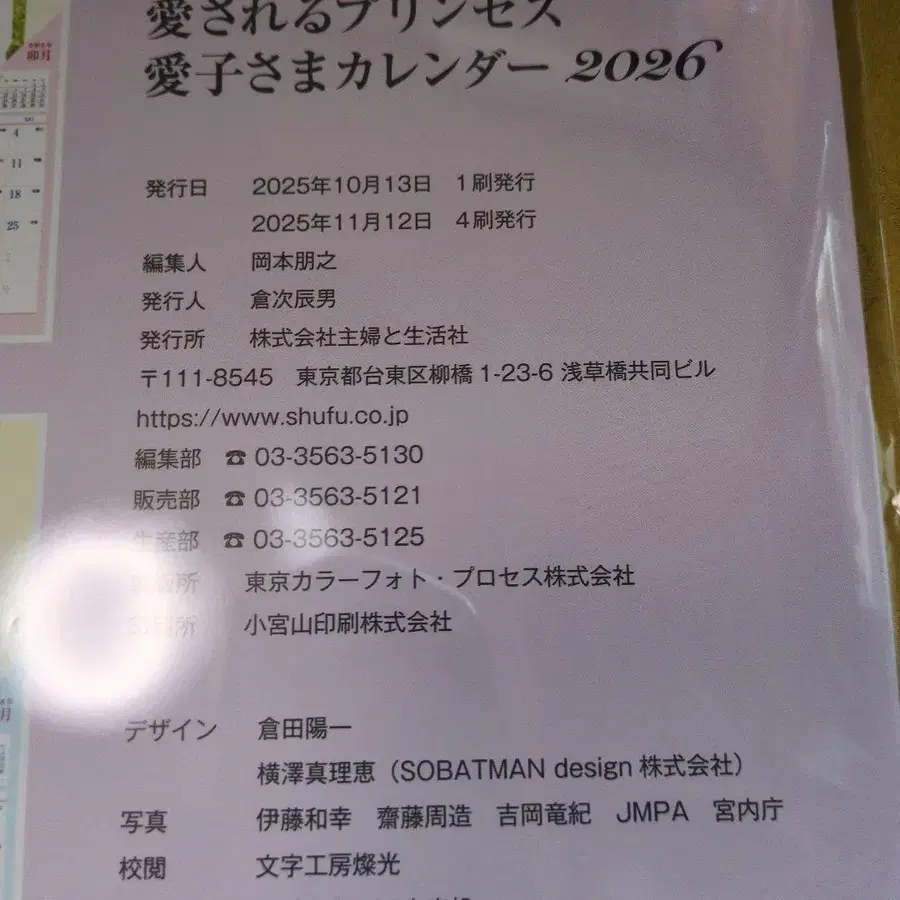 愛されるプリンセス
愛子さまカレンダー 2026
発行日 2025年10月13日 1刷発行
2025年11月12日 4刷発行
編集人 岡本朋之
発行人 倉次辰男
発行所 株式会社主婦と生活社
〒111-8545 東京都台東区柳橋1-23-6 浅草橋共同ビル
https://www.shufu.co.jp
編集部 ☎ 03-3563-5130
販売部 ☎ 03-3563-5121
生産部 ☎ 03-3563-5125
東京カラーフォト・プロセス株式会社
印刷所 小宮山印刷株式会社
デザイン 倉田陽一
横澤真理恵（SOBATMAN design 株式会社）
写真 伊藤和幸 齋藤周造 吉岡竜紀 JMPA 宮内庁
校閲 文字工房燦光
卯月
4
11
18
25